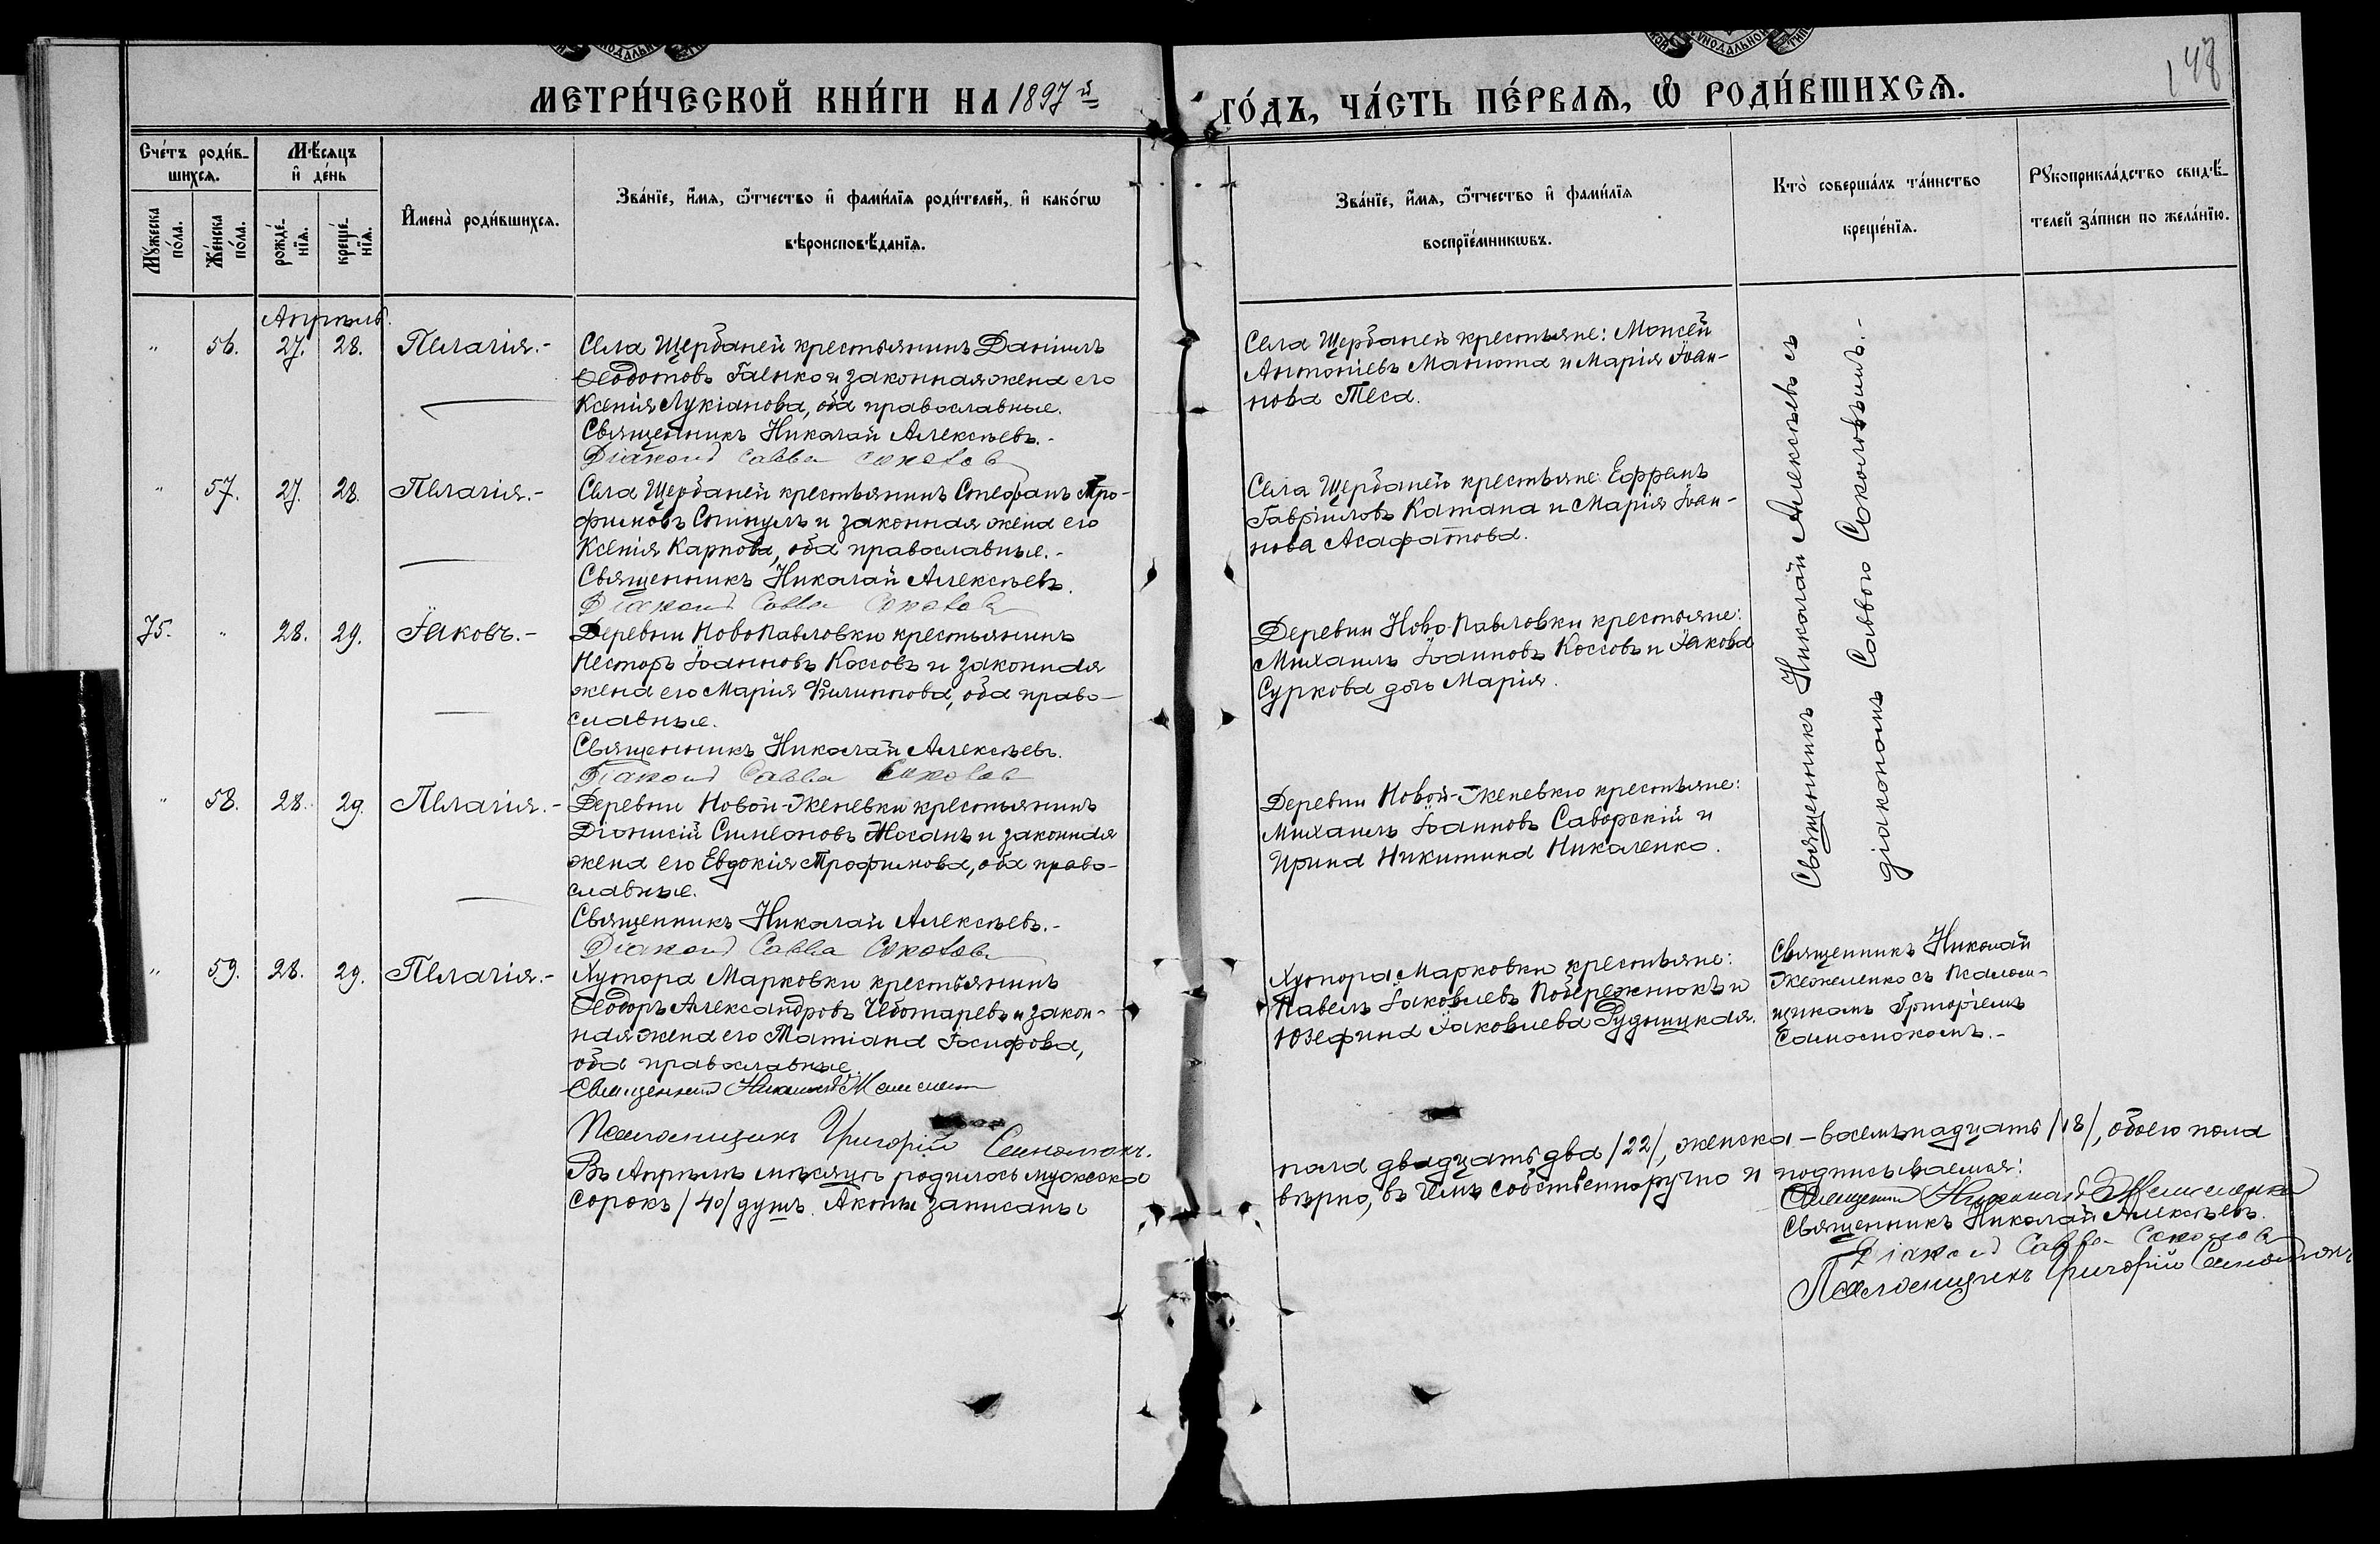 148
МЕТРИ́ЧЕСКОЙ КНИ́ГИ НА 1897й
ГО́ДЪ, ЧА́СТЬ ПЕ́РВАѦ, Ѡ РОДИ́ВШИХСѦ.
Сче́тъ роди́в-
шихсѧ.
Мѣ́сѧцъ
и҆ де́нь
Мꙋ́жеска
по́ла.
Же́нска
по́ла.
рожде́-
нїѧ.
креще́-
нїѧ.
И҆мена̀ роди́вшихсѧ.
Зва́нїе, и҆́мѧ, ѻ҆́тчество и҆ фами́лїѧ роди́телей, и҆ како́гѡ
вѣроисповѣ́данїѧ.
Зва́нїе, и҆́мѧ, ѻ҆́тчество и҆ фами́лїѧ
воспрїе́мникѡвъ.
Кто̀ соверша́лъ та́инство
креще́нїѧ.
Рꙋкоприкла́дство свидѣ́-
телей за́писи по жела́нїю.
Апрѣль.
" 56. 27. 28. Пелагія.-
Села Щербаней крестьянинъ Даніилъ
Ѳеодотовъ Гаенко и законная жена его
Ксенія Лукіанова, оба православные.
Священникъ Николай Алексѣевъ.-
Діаконъ Савва Соколов
Села Щербаней крестьяне: Моисей
Антоніевъ Манюта и Марія Іоан-
нова Теса.
" 57. 27. 28. Пелагія.-
Села Щербаней крестьянинъ Стефанъ Тро-
фимовъ Спинулъ и законная жена его
Ксенія Карпова, оба православные.-
Священникъ Николай Алексѣевъ.
Діаконъ Савва Соколов
Села Щербаней крестьяне: Ефремъ
Гавріиловъ Катана и Марія Іоан-
нова Асафатова.
75. " 28. 29. Іаковъ.-
Деревни НовоПавловки крестьянинъ
Несторъ Іоанновъ Коссовъ и законная
жена его Марія Филиппова, оба право-
славные.
Священникъ Николай Алексѣевъ.
Діаконъ Савва Соколов
Деревни Ново-Павловки крестьяне:
Михаилъ Іоанновъ Коссовъ и Іакова
Суркова дочь Марія.
" 58. 28. 29. Пелагія.-
Деревни Новой-Женевки крестьянинъ
Діонисій Симеоновъ Мосанъ и законная
жена его Евдокія Трофимова, оба право-
славные.
Священникъ Николай Алексѣевъ.-
Діаконъ Савва Соколов
Деревни Новой-Женевки крестьяне:
Михаилъ Іоанновъ Саворскій и
Ирина Никитина Николенко.
Священникъ Николай Алексѣевъ съ
діакономъ Саввою Соколовымъ.-
" 59. 28. 29. Пелагія.-
Хутора Марковки крестьянинъ
Ѳеодоръ Александровъ Чеботаревъ и закон-
ная жена его Татіана Іосифова,
оба православные.
Священникъ Николай
Псаломщикъ Григорій
Хутора Марковки крестьяне:
Павелъ Іаковлевъ Побережнюкъ и
Юзефина Іаковлева Рудницкая.
Священникъ Николай
Жежеленко съ псалом-
щикомъ Григоріемъ
Въ Апрѣлѣ мѣсяцѣ родилось мужеска
пола двадцать два /22/, женска - восемьнадцать /18/, обоего пола
сорокъ /40/ душъ. Акты записаны
вѣрно, въ чемъ собственноручно и подписываемся:
Священникъ Николай
Священникъ Николай Алексѣевъ.
Діаконъ Савва Соколов
Псаломщикъ Григорій